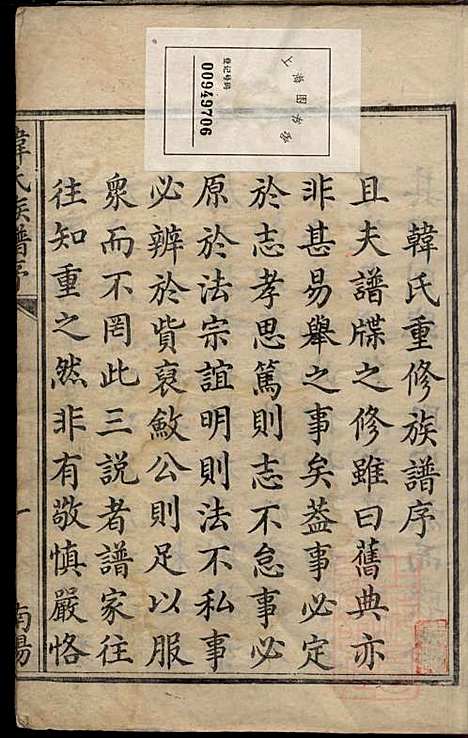 韓氏重修族譜序
且夫譜牒之修雖曰舊典亦
非甚易舉之事矣葢事必定
於志孝思篤則志不怠事必
原於法宗誼明則法不私事
必辨於貲裒斂公則足以服
衆而不罔此三說者譜家往
往知重之然非有敬慎嚴恪
韓氏族譜序
一
南陽
登记号码
00949706